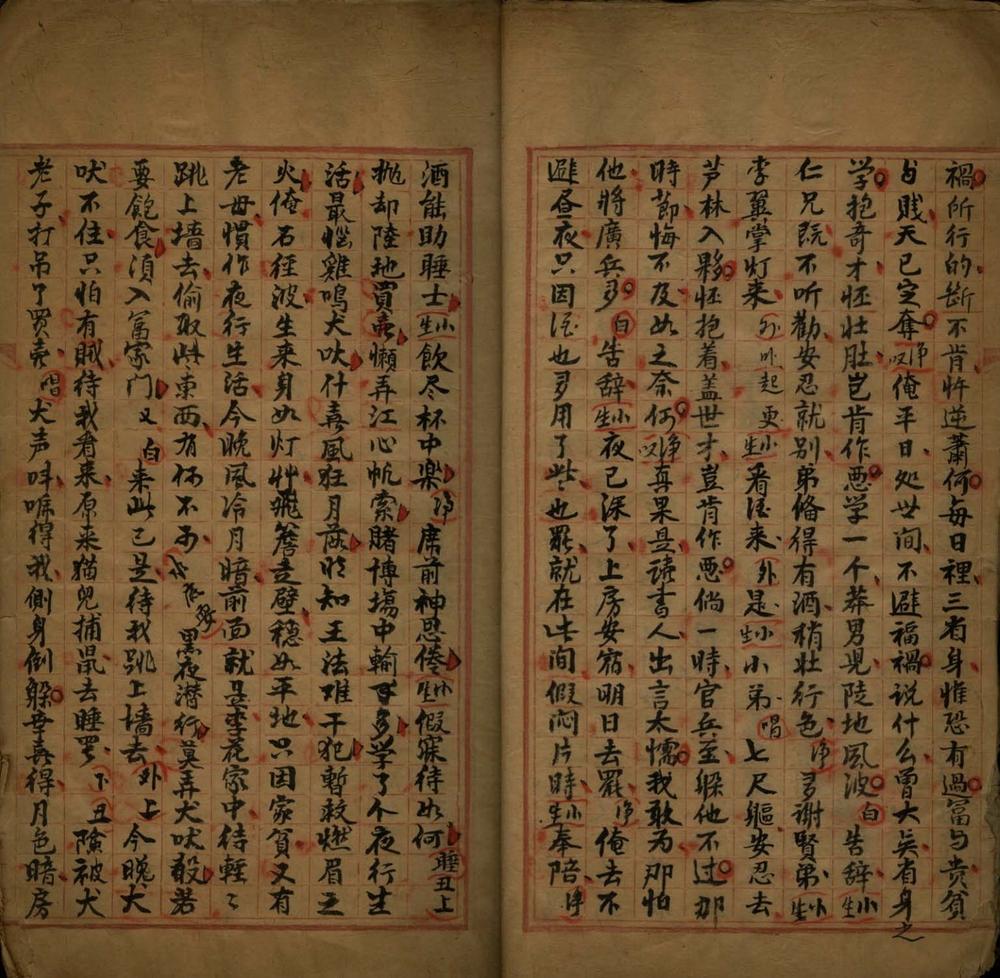 禍所行的断不肯忤逆蕭何每日裡三省身惟恐有過富与貴貧
与贱天已定奪净又俺平日处世间不避福禍说什么曾大矣有身之
学抱奇才怪壮肚岂肯作悪学一个莽男児陡地風波白告辞生小
仁兄既不听勸安忍就别弟俻得有酒稍壮行色净多谢賢弟生小
李翼掌灯来外吖起更生小看酒来外是生小小弟唱七尺軀安忍去
芦林入夥怪抱着盖世才豈肯作悪倘一時官兵至躱他不过那
時節悔不及如之奈何净又真果是读書人出言太懦我敢为那怕
他將廣兵多白告辞生小夜已深了上房安宿明日去罷净俺去不
避昼夜只因酒也多用了些也罷就在此间假闷片時生小奉陪净
酒能助睡士生小飲尽杯中楽净席前神思倦生小假寐待如何睡丑上
抛却陸地買壶懶弄江心帆索賭博場中輸多学了个夜行生
活最惱雞鳴犬吠什喜風狂月落明知王法难干犯暫救燃眉之
火俺石徑波生来身如灯艸飛簷走壁穏如平地只因家貧又有
老母慣作夜行生活今晚風冷月暗前面就是李花家中待輕〻
跳上墙去偷取些東西有何不可 黑夜潜行莫弄犬吠殺若
要飽食湏入富家門又白来此已是待我跳上墻去外上今晚犬
吠不住只怕有贼待我看来原来猫児捕鼠去睡罢下丑險被犬
老子打吊了買壶唱犬声呌唬得我側身倒躱幸喜得月色暗房